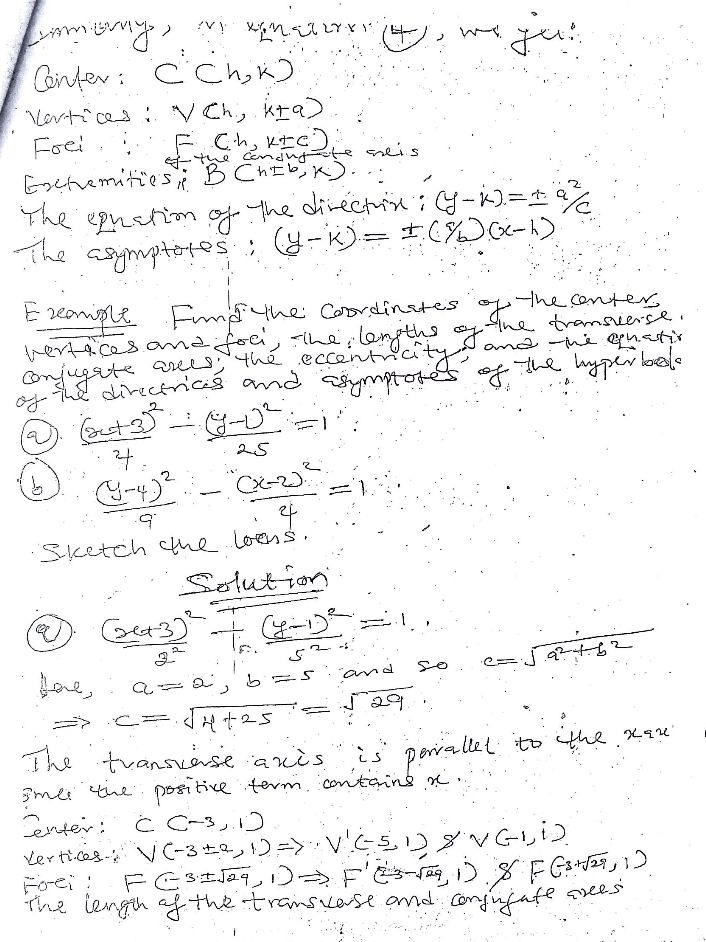 in equation (4), we get:
Center: C(h, k)
Vertices: V(h, k±a)
Foci: F(h, k±c)
of the conjugate axis
Extremities: B(h±b, k).
The equation of the directrix: (y-k) = ± a²/c
The asymptotes: (y-k) = ± (a/b)(x-h)
Example Find the coordinates of the center,
vertices and foci, the lengths of the transverse,
conjugate axes, the eccentricity, and the equatio
of the directrices and asymptotes of the hyperbola
(a) (x+3)²/4 - (y-1)²/25 = 1
(b) (y-4)²/9 - (x-2)²/4 = 1
Sketch the locus.
Solution
(a) (x+3)²/2² - (y-1)²/5² = 1.
Here, a=2, b=5 and so c=√a²+b²
⇒ c = √4+25 = √29.
The transverse axis is parallel to the x ax
since the positive term contains x.
Center: C(-3, 1)
Vertices: V(-3±2, 1) ⇒ V'(-5, 1) & V(-1, 1)
Foci: F(-3±√29, 1) ⇒ F'(-3-√29, 1) & F(-3+√29, 1)
The length of the transverse and conjugate axes